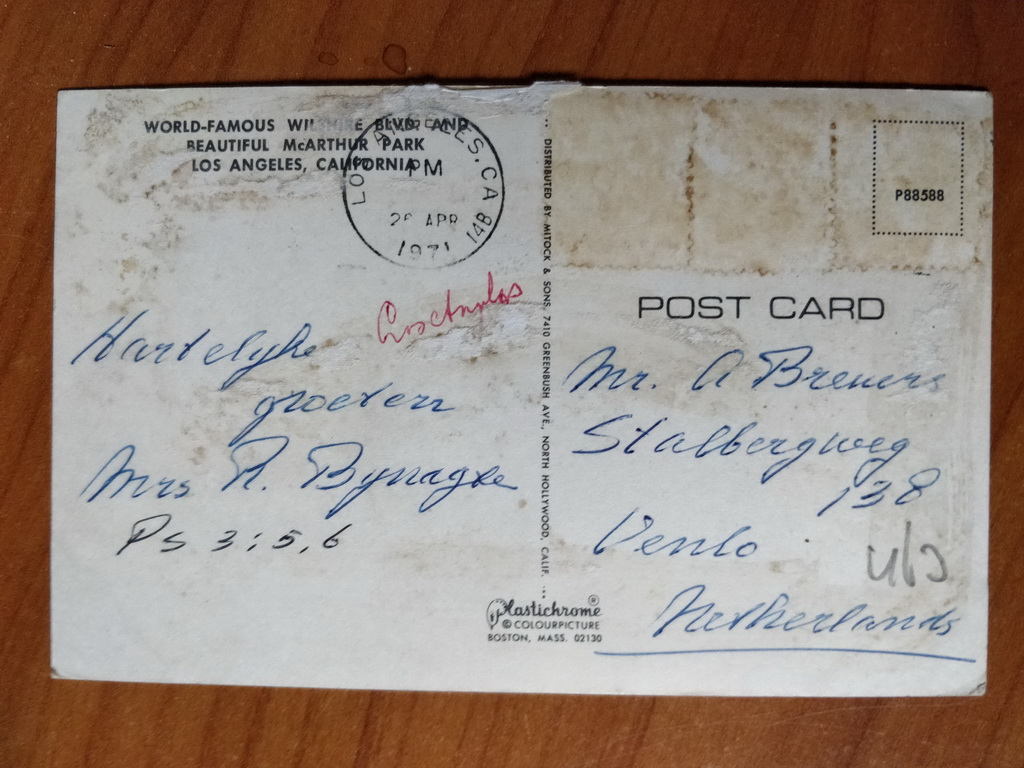 WORLD-FAMOUS WILSHIRE BLVD. AND
BEAUTIFUL McARTHUR PARK
LOS ANGELES, CALIFORNIA
LOS ANGELES, CA 14B
PM
APR
1971
Hartelyke
groeten
Mrs R. Bynagte
Ps 3:5,6
DISTRIBUTED BY MITOCK & SONS, 7410 GREENBUSH AVE., NORTH HOLLYWOOD, CALIF.
Plastichrome ®
© COLOURPICTURE
BOSTON, MASS. 02130
P88588
POST CARD
Mr. A Brewers
Stalbergweg
138
Venlo
Netherlands